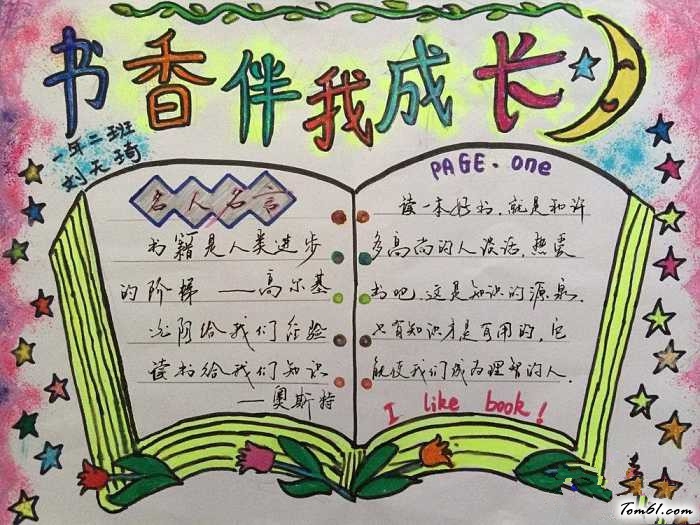 书香伴我成长
一年二班
刘天琦
PAGE.one
名人名言
书籍是人类进步
的阶梯 ——高尔基
光阴给我们经验
读书给我们知识
——奥斯特
读一本好书,就是和许
多高尚的人谈话,热爱
书吧,这是知识的源泉,
只有知识才是有用的,它
能使我们成为理智的人.
I like book!
Tom61.com